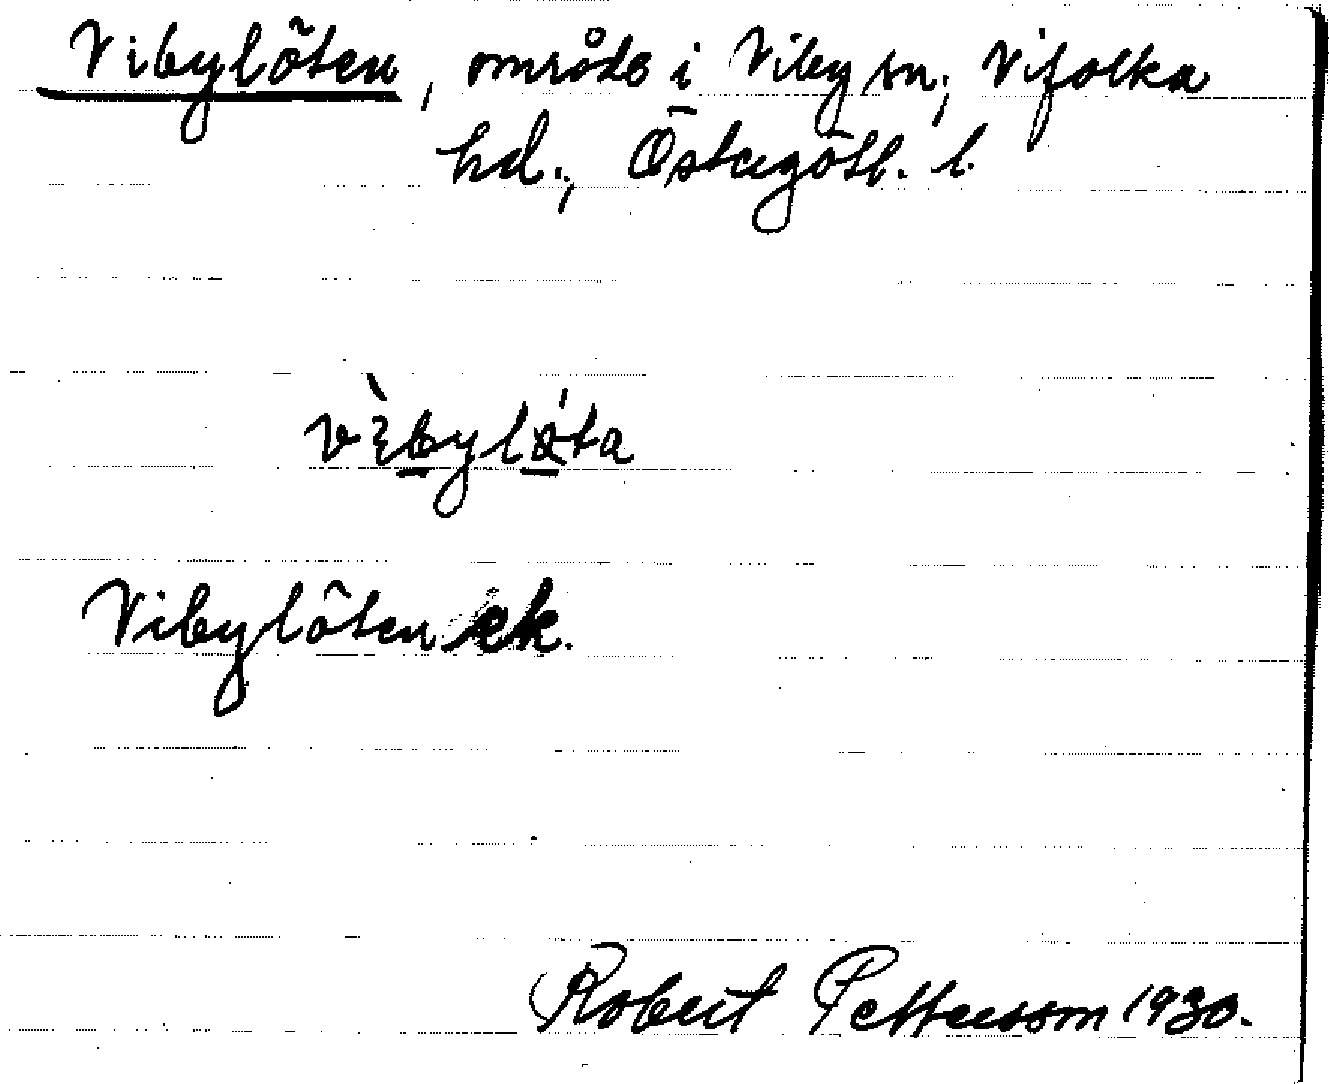 Vibylöten, område i Viby sn, Vifolka
hd., Östergötl. l.
Vibylöten ek.
Robert Pettersson 1930.